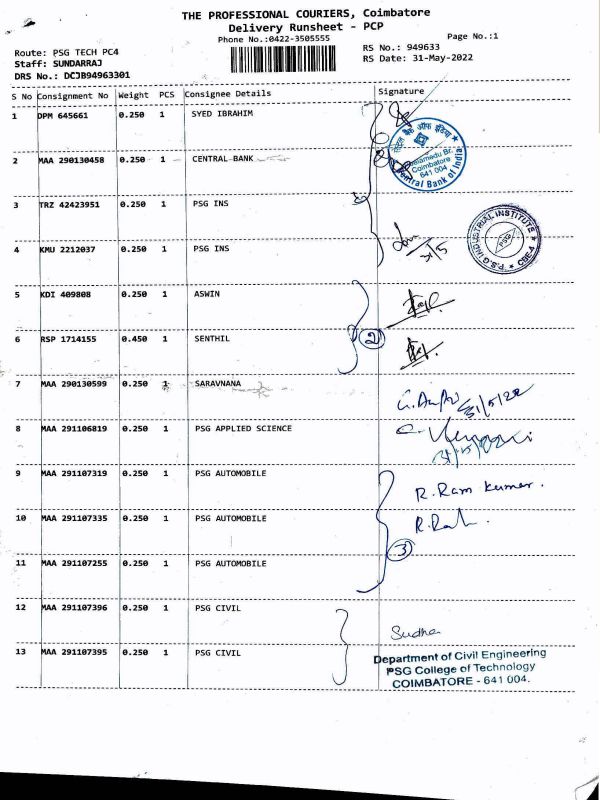 THE PROFESSIONAL COURIERS, Coimbatore
Delivery Runsheet - PCP
Phone No.:0422-3505555
Page No.:1
Route: PSG TECH PC4
RS No.: 949633
Staff: SUNDARRAJ
RS Date: 31-May-2022
DRS No.: DCJB94963301
S No Consignment No Weight PCS Consignee Details Signature
1 DPM 645661 0.250 1 SYED IBRAHIM
2 MAA 290130458 0.250 1 CENTRAL-BANK
Coimbatore
641 004
Central Bank of India
3 TRZ 42423951 0.250 1 PSG INS
P.S.G INDUSTRIAL INSTITUTE ★ CBE-4 ★
PSG
4 KMU 2212037 0.250 1 PSG INS
31/5
5 KDI 409808 0.250 1 ASWIN
6 RSP 1714155 0.450 1 SENTHIL
2
7 MAA 290130599 0.250 1 SARAVNANA
31/5/22
8 MAA 291106819 0.250 1 PSG APPLIED SCIENCE
9 MAA 291107319 0.250 1 PSG AUTOMOBILE
R.Ram kumar.
10 MAA 291107335 0.250 1 PSG AUTOMOBILE
3
11 MAA 291107255 0.250 1 PSG AUTOMOBILE
12 MAA 291107396 0.250 1 PSG CIVIL
Sudha
13 MAA 291107395 0.250 1 PSG CIVIL
Department of Civil Engineering
PSG College of Technology
COIMBATORE - 641 004.